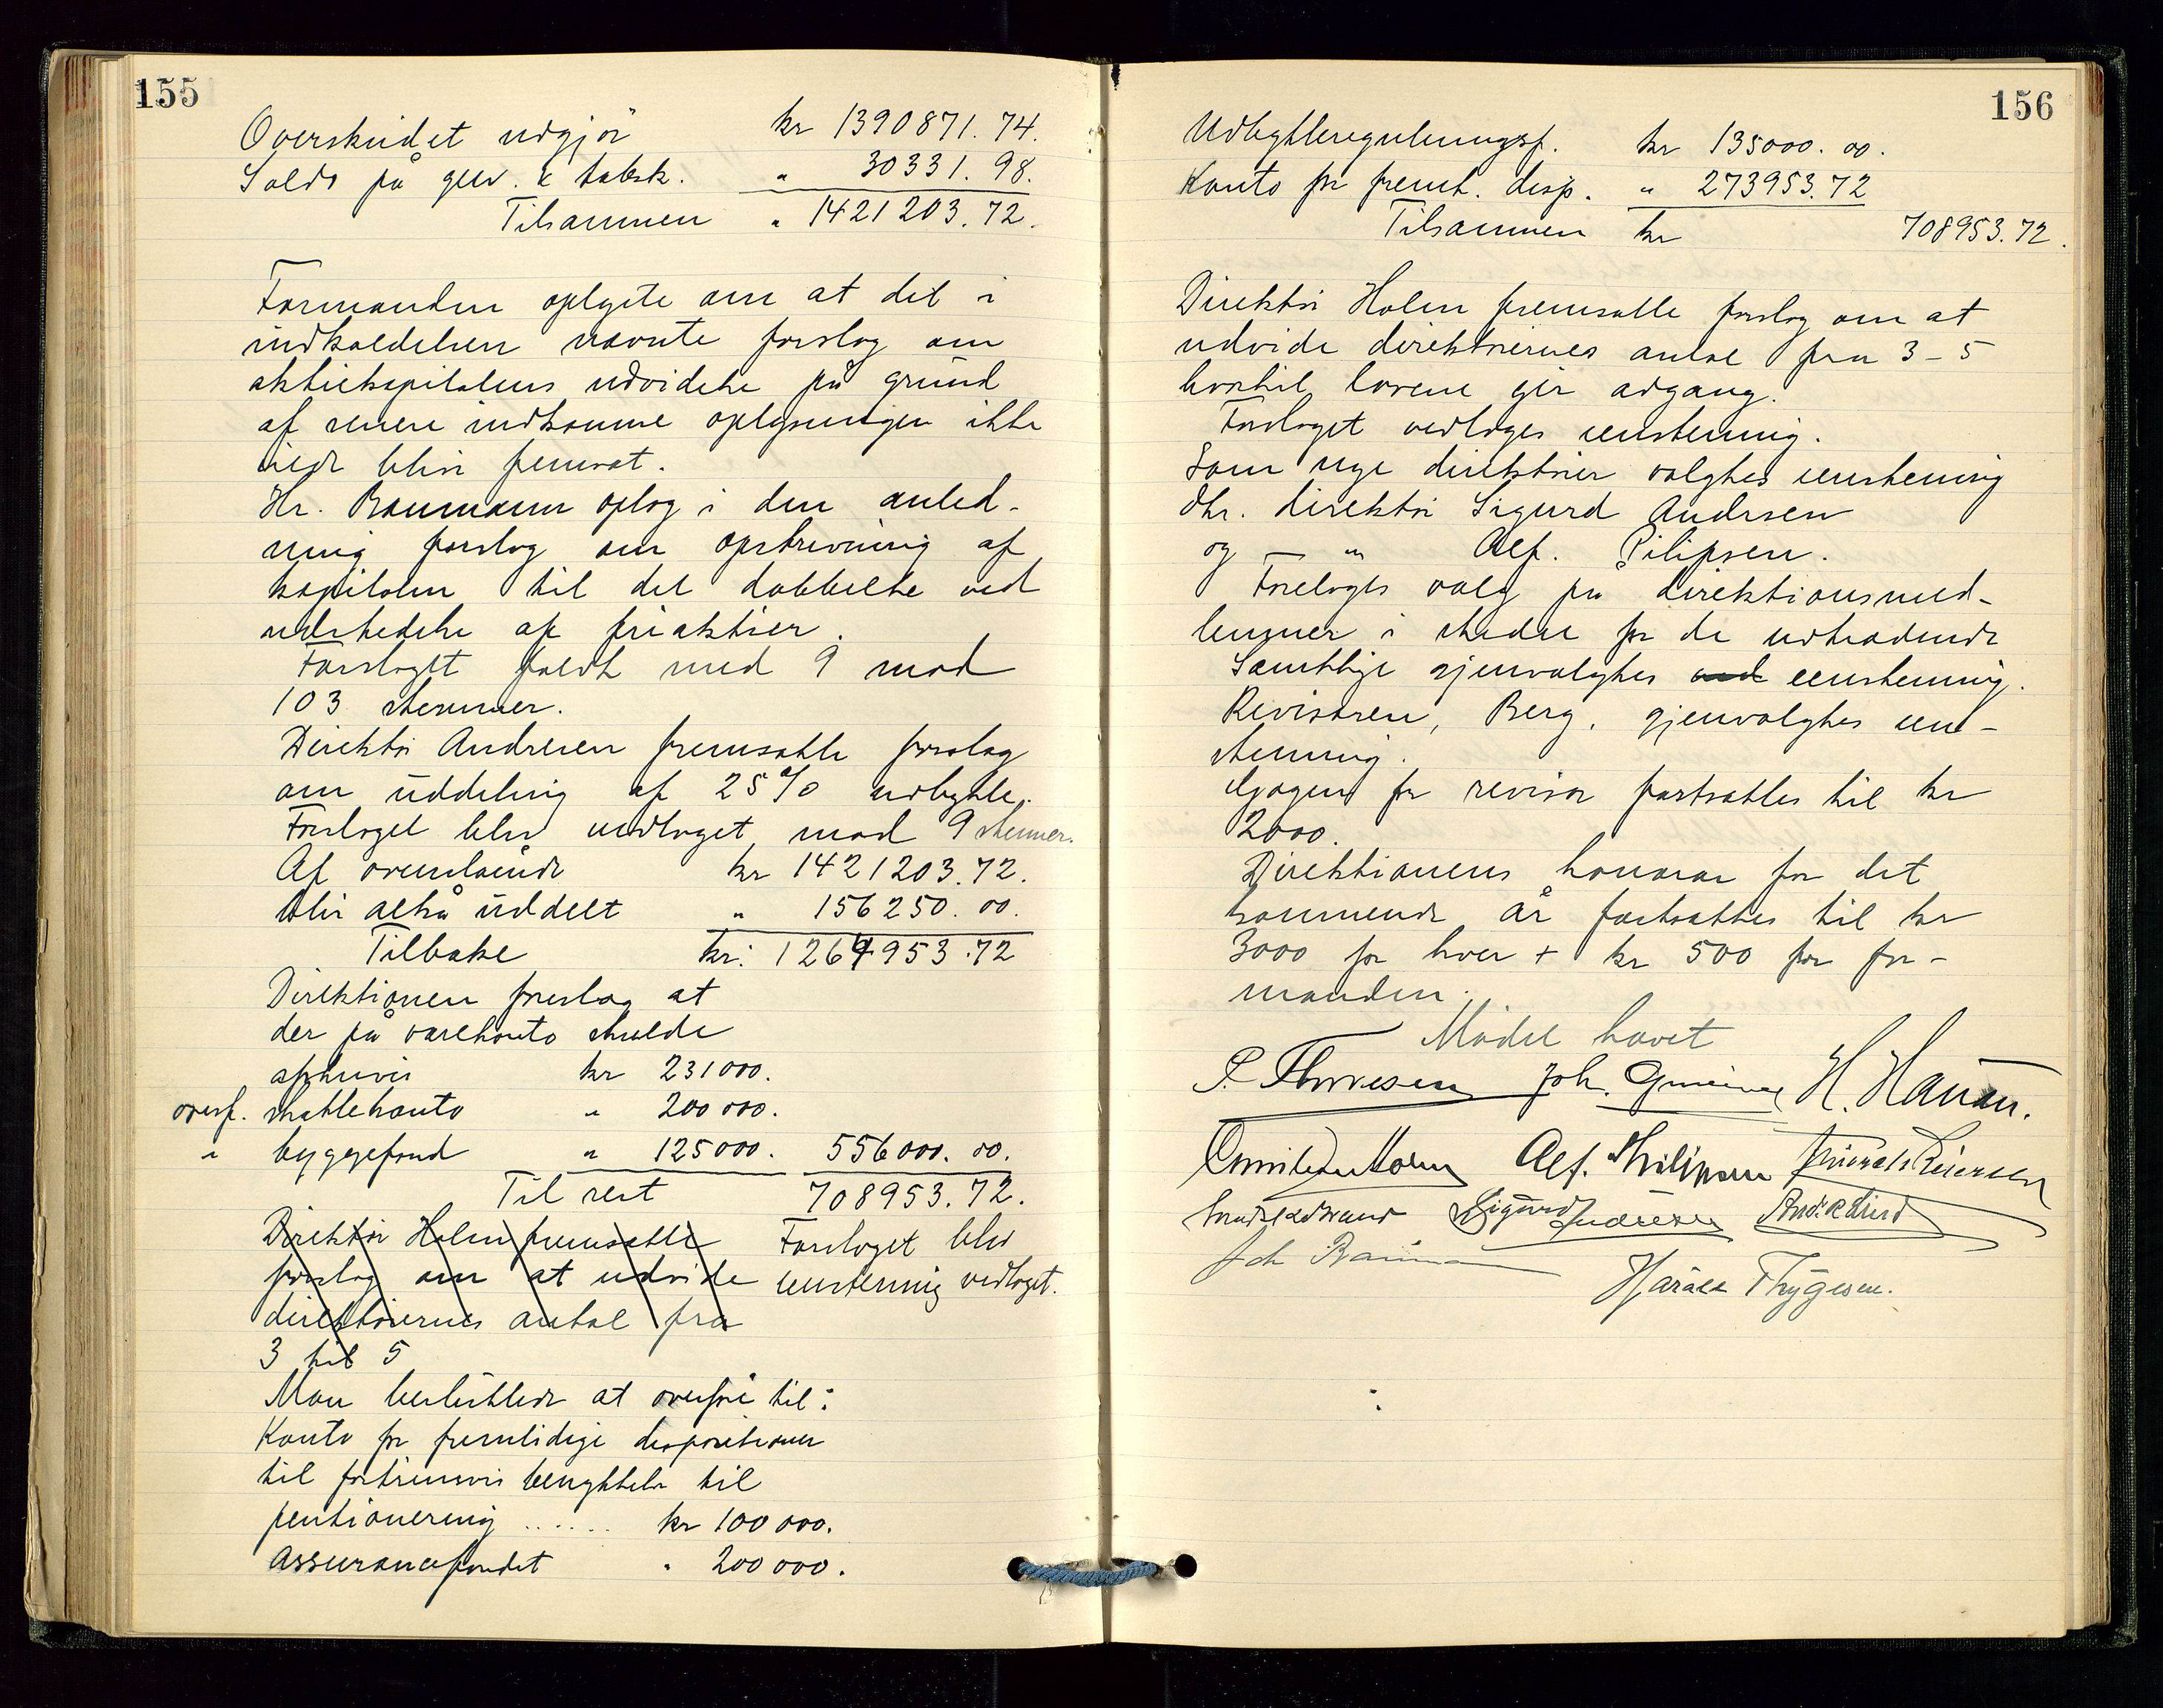 155
Overskudet udgjör kr 1390871.74.
Saldo på gev. & tabsk. " 30331.98.
Tilsammen " 1421203.72.
Formanden oplyste om at det i
indkaldelsen nævnte forslag om
aktiekapitalens udvidelse på grund
af senere indkomne oplysninger ikke
vilde blive fremsat.
Hr. Baumann optog i den anled-
ning forslag om opskrivning af
kapitalen til det dobbelte ved
udstedelse af friaktier.
Forslaget faldt med 9 mod
103 stemmer.
Direktör Andresen fremsatte forslag
om uddeling af 25% udbytte.
Forslaget blev vedtaget mod 9 stemmer.
Af ovenstående kr 1421203.72.
blir altså uddelt " 156250.00.
Tilbake kr. 1264953.72
Direktionen foreslog at
der på varekonto skulde
afskrives kr 231000.
overf. skattekonto " 200000.
" byggefond " 125000. 556000.00.
Til rest 708953.72.
Direktör Holm fremsatte Forslaget blev
forslag om at udvide enstemmig vedtaget.
direktörernes antal fra
3 til 5
Man besluttede at overföre til:
Konto for fremtidige dispositioner
til fortrinsvis benyttelse til
pentionering ...... kr 100000.
Assurancefondet " 200000.
156
Udbyttereguleringsf. kr 135000.00.
Konto for fremt. disp. " 273953.72
Tilsammen kr 708953.72.
Direktör Holm fremsatte forslag om at
udvide direktörernes antal fra 3-5
hvortil lovene gir adgang.
Forslaget vedtoges enstemmig.
Som nye direktörer valgtes enstemmig
dhr. direktör Sigurd Andrsen
og — " Alf. Pilipsen.
Foretoges valg på direktionsmed-
lemmer i stedet for de udtrædende
Samtlige gjenvalgtes ved eenstemmig.
Revisoren, Berg, gjenvalgtes een-
stemmig.
Gagen for revisor fastsattes til kr
2000.
Direktionens honorar for det
kommende år fastsattes til kr
3000 for hver + kr 500 for for-
manden.
Mödet hævet
P. Thoresen Joh. H. Hansen.
Alf. Philipsen
Sigurd Andresen
Joh Baumann
Harald Thygesen.